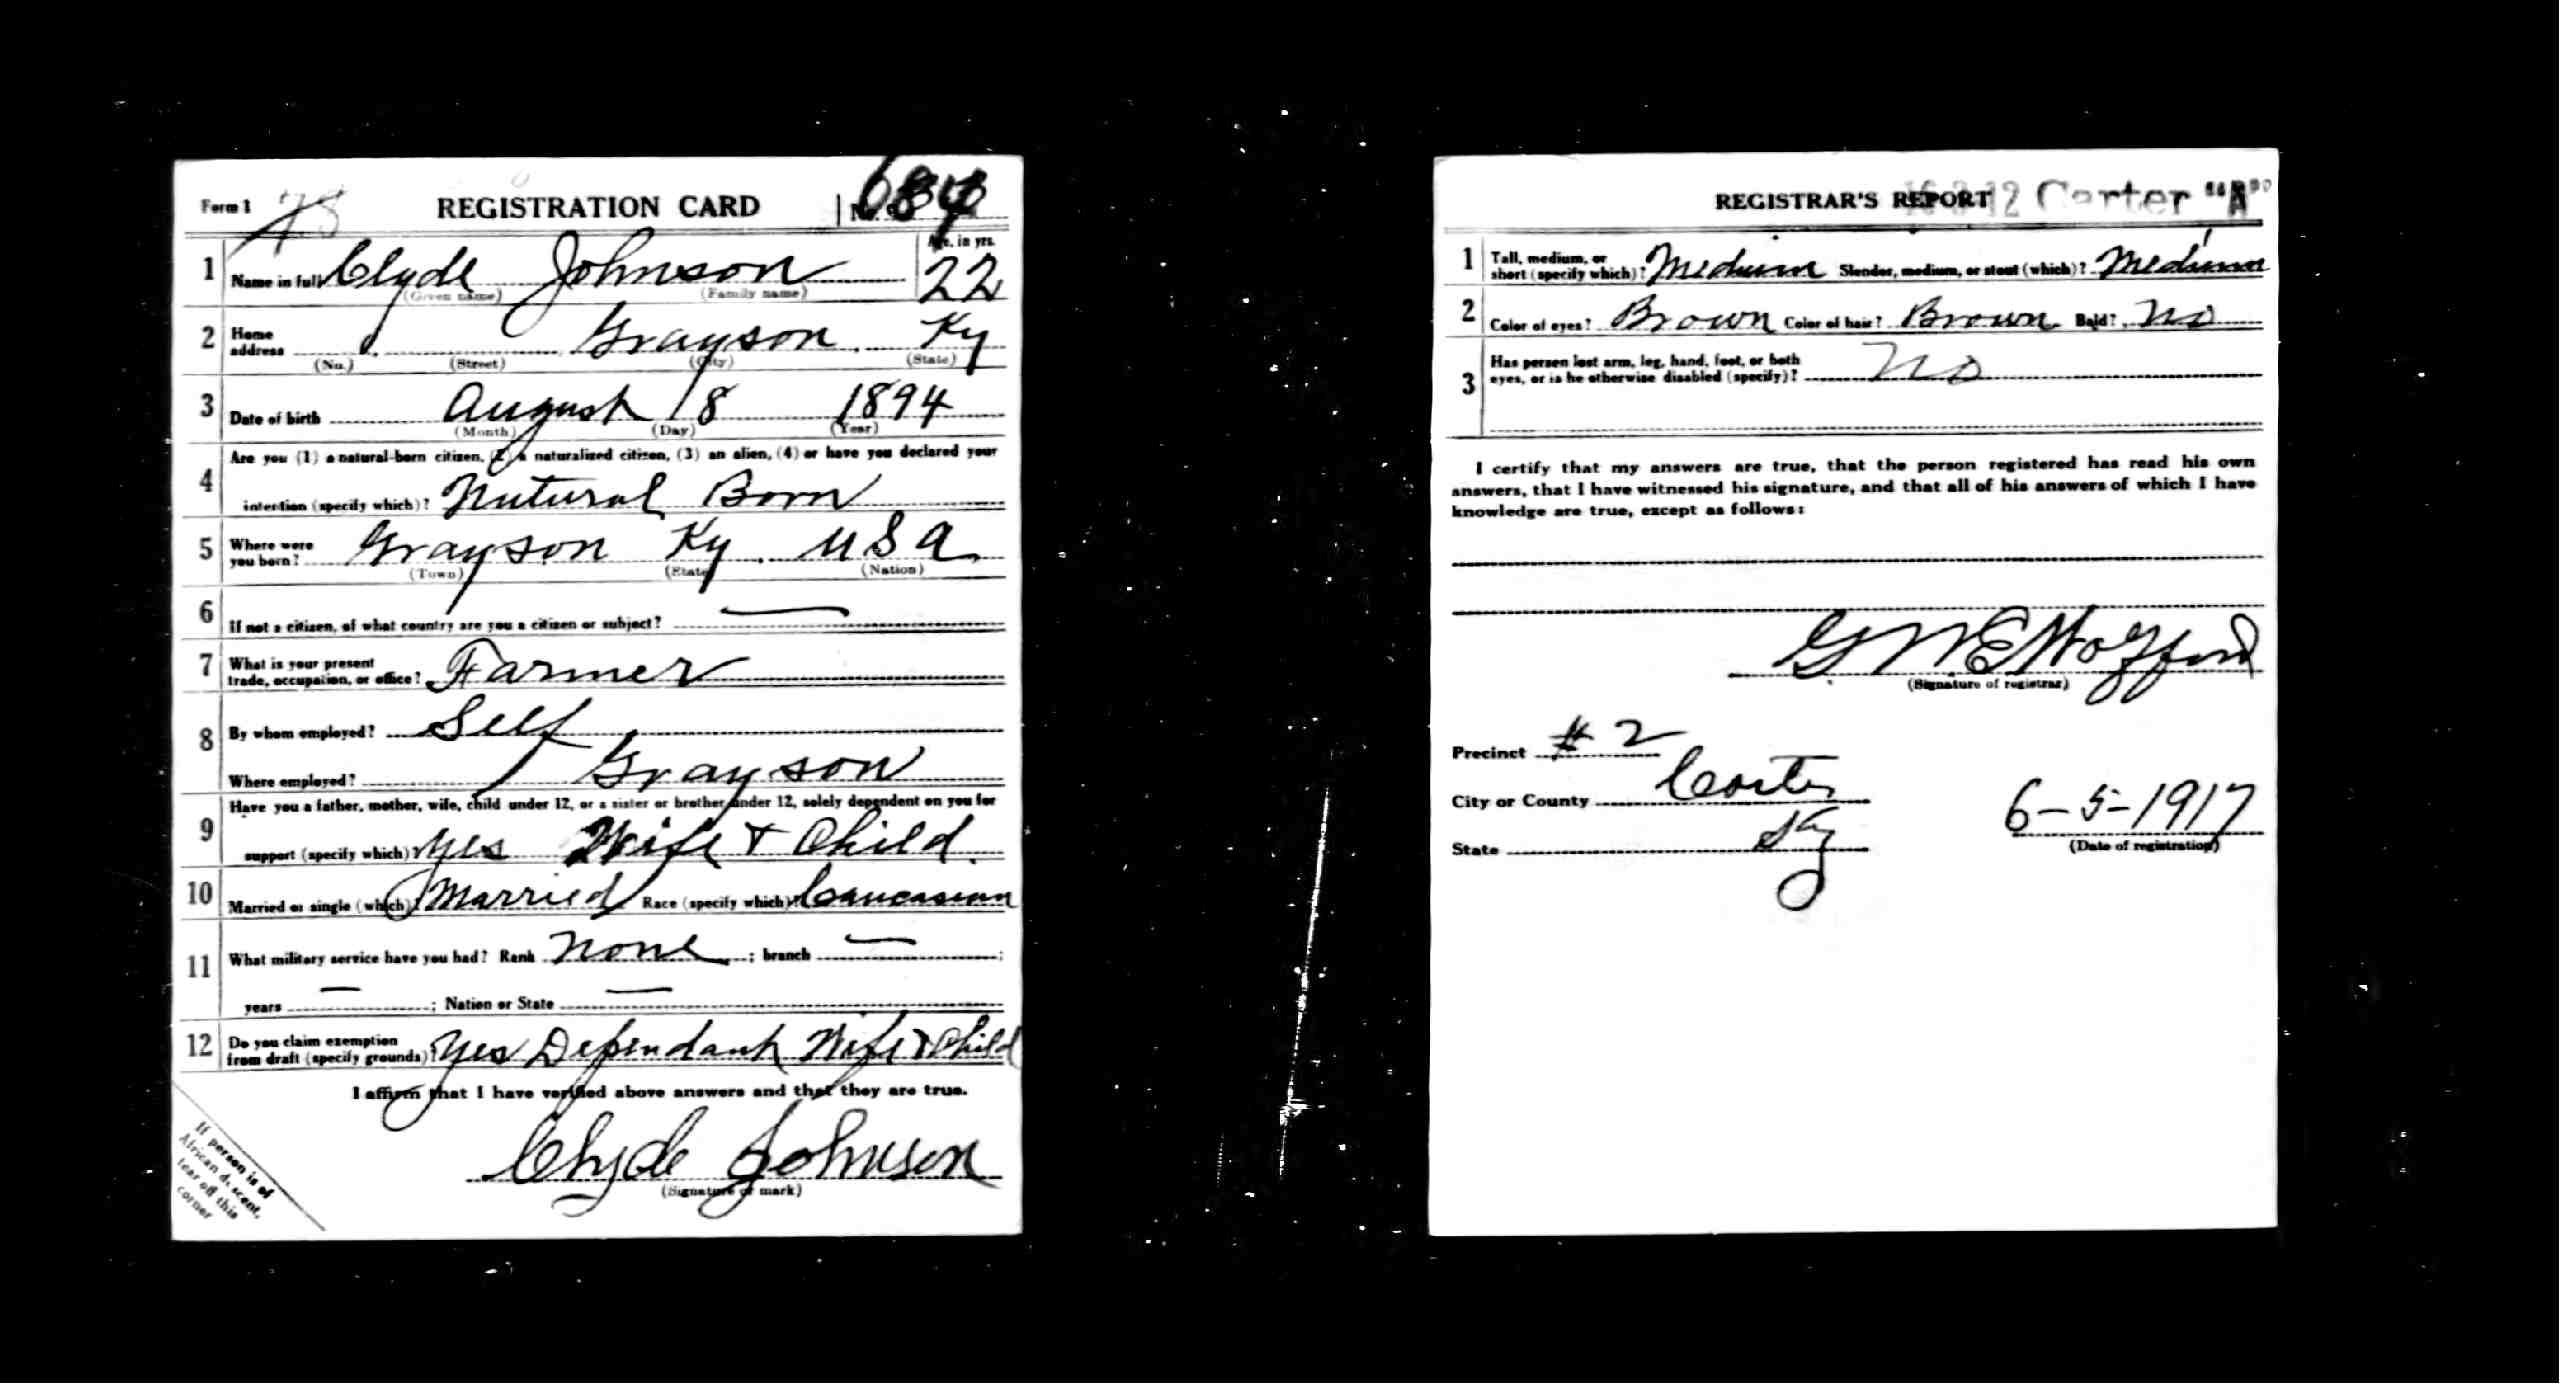 Form 1 REGISTRATION CARD No.
1 Name in full Clyde Johnson Age, in yrs. 22
(Given name) (Family name)
2 Home address Grayson Ky
(No.) (Street) (City) (State)
3 Date of birth August 18 1894
(Month) (Day) (Year)
4 Are you (1) a natural-born citizen, (2) a naturalized citizen, (3) an alien, (4) or have you declared your
intention (specify which)? Natural Born
5 Where were you born? Grayson Ky. USA
(Town) (State) (Nation)
6 If not a citizen, of what country are you a citizen or subject? —
7 What is your present trade, occupation, or office? Farmer
8 By whom employed? Self
Where employed? Grayson
9 Have you a father, mother, wife, child under 12, or a sister or brother under 12, solely dependent on you for
support (specify which)? Yes Wife + Child.
10 Married or single (which)? Married Race (specify which)? Caucasian
11 What military service have you had? Rank None ; branch — ;
years — ; Nation or State —
12 Do you claim exemption from draft (specify grounds)? Yes Dependant Wife + Child
I affirm that I have verified above answers and that they are true.
Clyde Johnson
(Signature or mark)
If person is of
African descent,
tear off this
corner
REGISTRAR'S REPORT Carter "A"
1 Tall, medium, or short (specify which)? Medium Slender, medium, or stout (which)? Medium
2 Color of eyes? Brown Color of hair? Brown Bald? No
3 Has person lost arm, leg, hand, foot, or both
eyes, or is he otherwise disabled (specify)? No
I certify that my answers are true, that the person registered has read his own
answers, that I have witnessed his signature, and that all of his answers of which I have
knowledge are true, except as follows:
(Signature of registrar)
Precinct # 2
City or County Carter
State Ky
6-5-1917
(Date of registration)